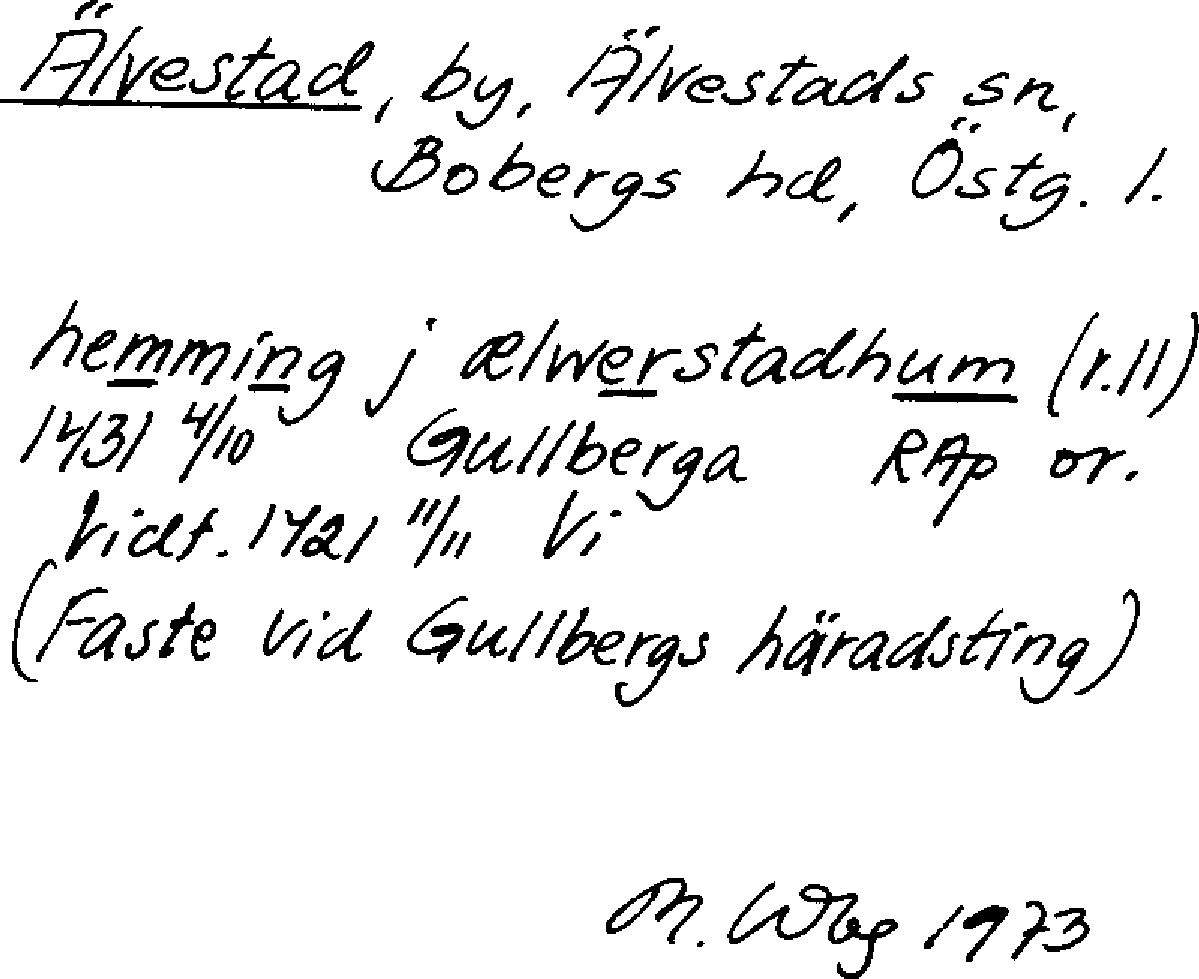 Älvestad, by, Älvestads sn,
Bobergs hd, Östg. l.
hemming j ælwerstadhum (r.11)
1431 4/10 Gullberga RAp or.
Vidf. 1421 11/11 Vi
(Faste vid Gullbergs häradsting)
M. Wbg 1973